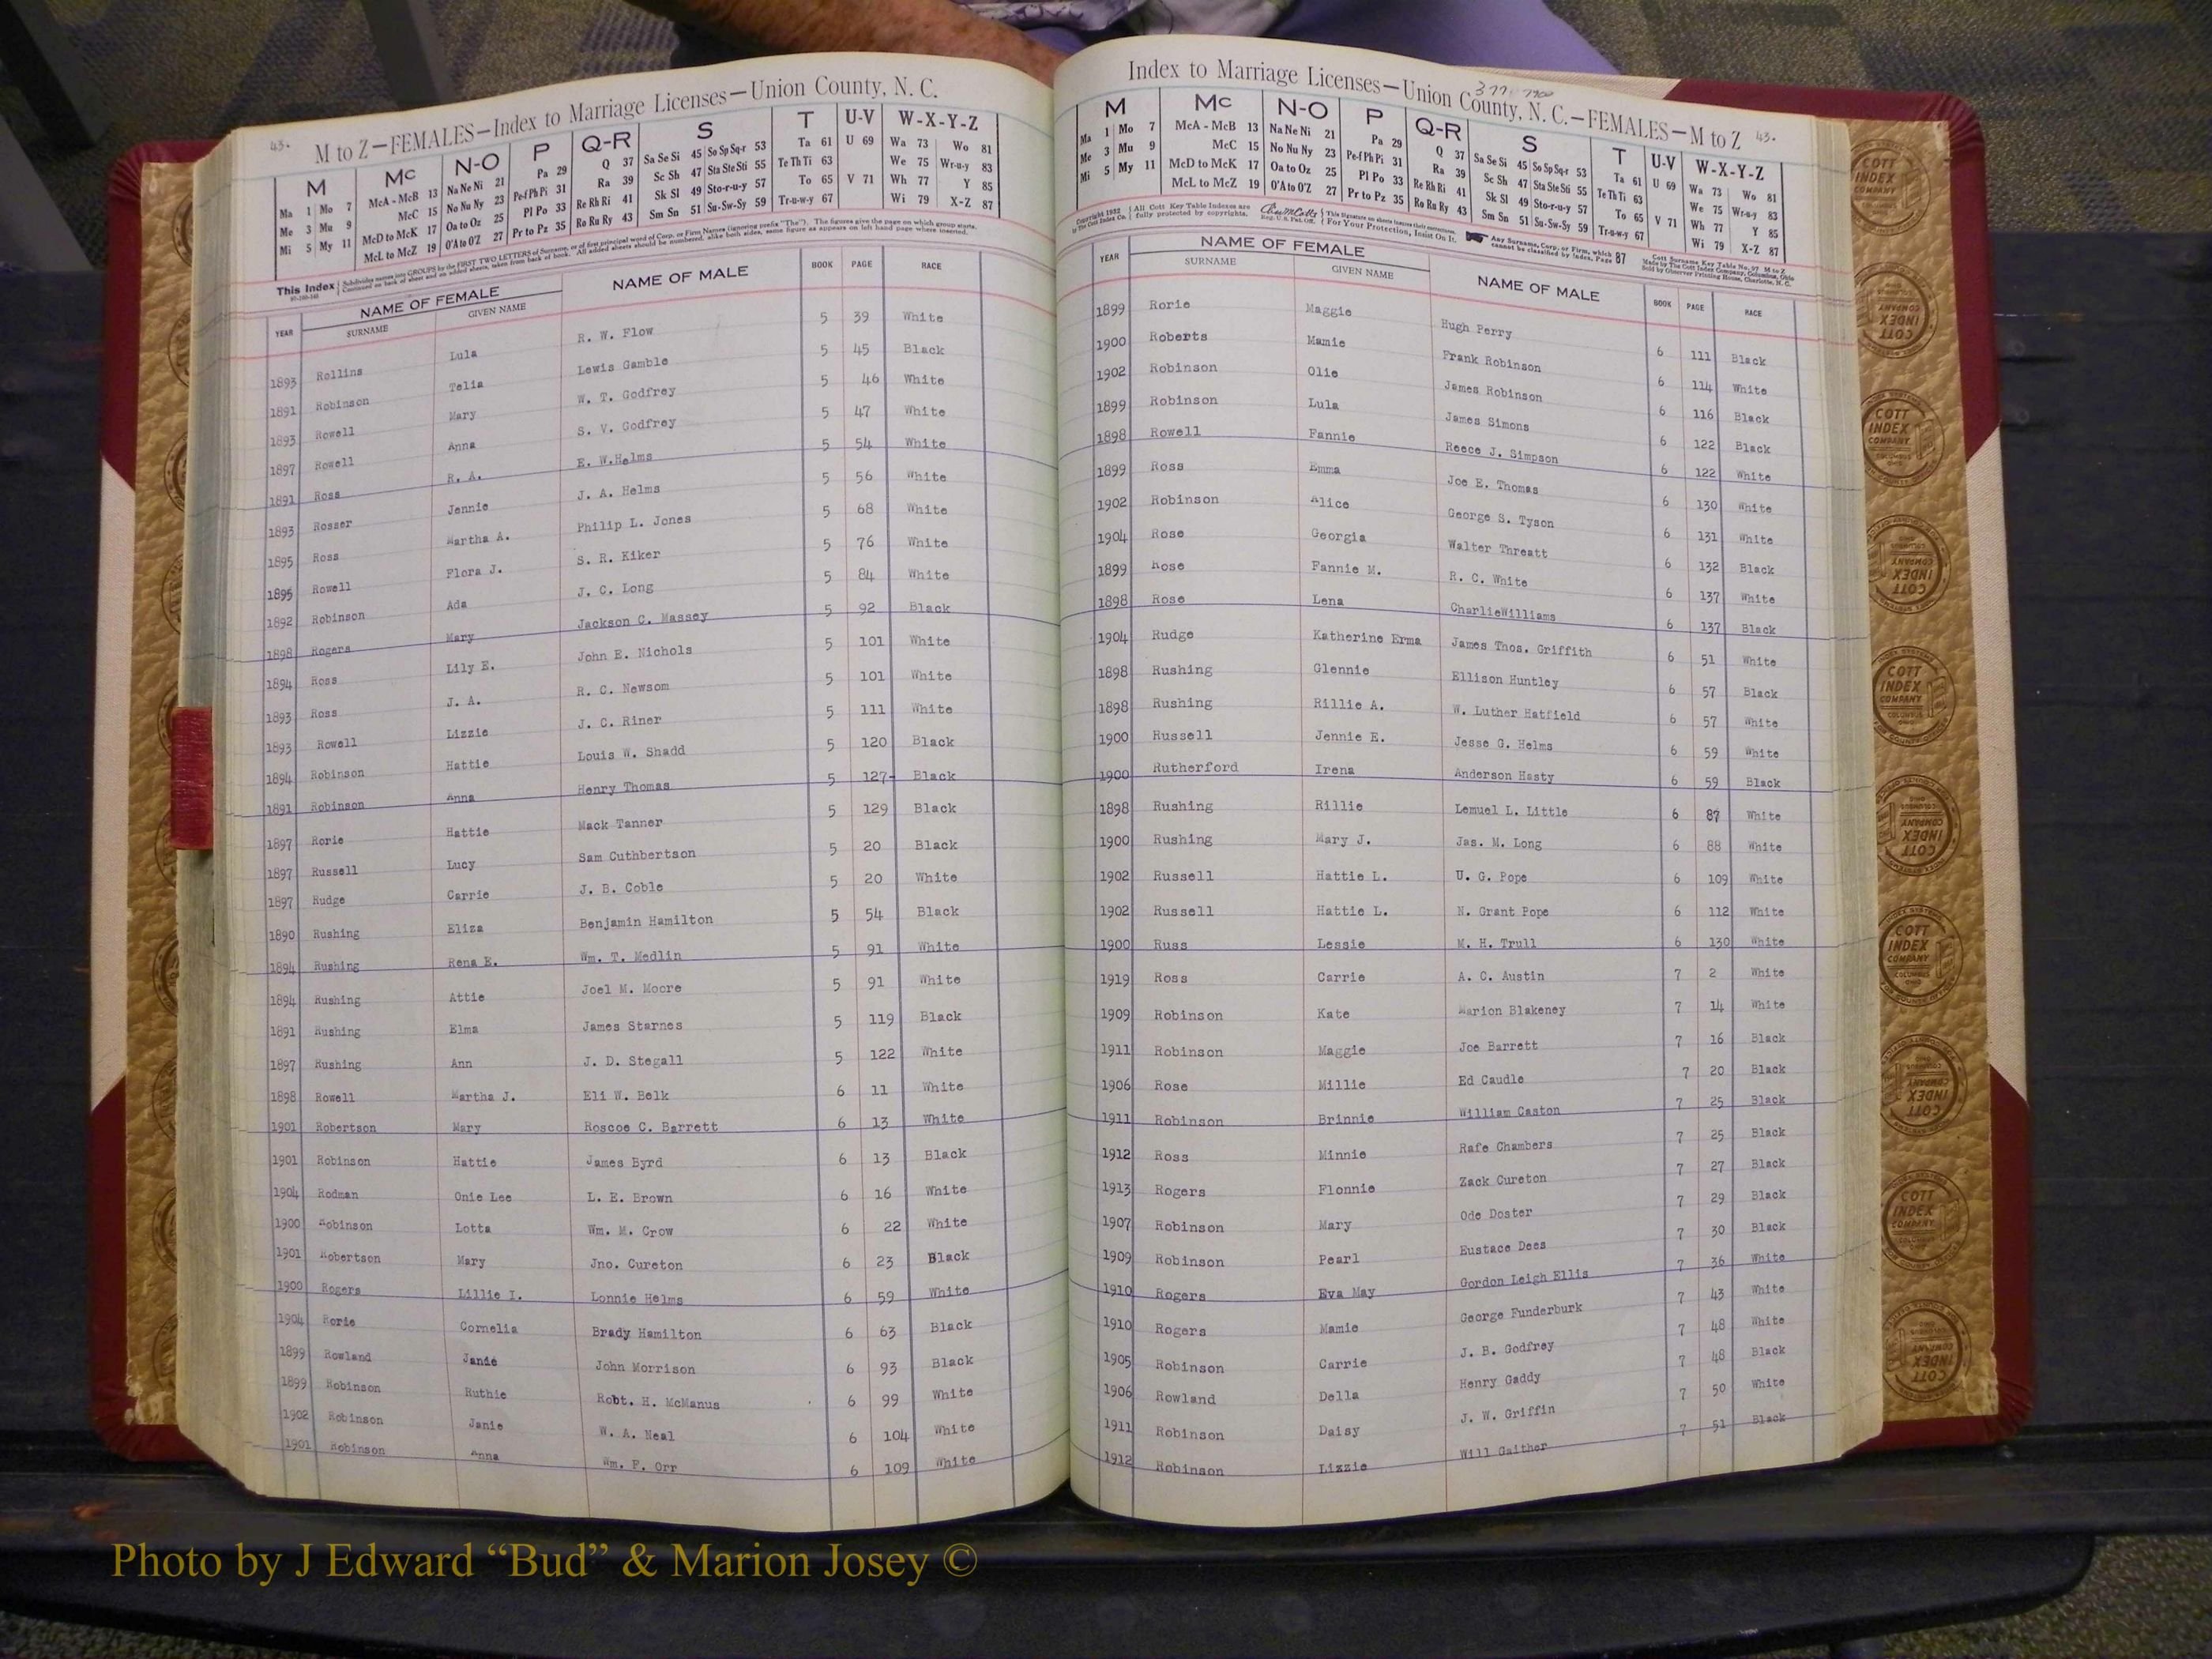 43.
M to Z—FEMALES—Index to Marriage Licenses—Union County, N. C.
M Mc N-O P Q-R S T U-V W-X-Y-Z
Ma 1 Mo 7 McA - McB 13 Na Ne Ni 21 Pa 29 Q 37 Sa Se Si 45 So Sp Sq-r 53 Ta 61 U 69 Wa 73 Wo 81
Me 3 Mu 9 McC 15 No Nu Ny 23 Pe-f Ph Pi 31 Ra 39 Sc Sh 47 Sta Ste Sti 55 Te Th Ti 63 We 75 Wr-u-y 83
Mi 5 My 11 McD to McK 17 Oa to Oz 25 Pl Po 33 Re Rh Ri 41 Sk Sl 49 Sto-r-u-y 57 To 65 V 71 Wh 77 Y 85
McL to McZ 19 O'A to O'Z 27 Pr to Pz 35 Ro Ru Ry 43 Sm Sn 51 Su-Sw-Sy 59 Tr-u-w-y 67 Wi 79 X-Z 87
This Index Subdivides names into GROUPS by the FIRST TWO LETTERS of Surname, or of first principal word of Corp. or Firm Names (ignoring prefix "The"). The figures give the page on which group starts.
Continued on back of sheet and on added sheets, taken from back of book. All added sheets should be numbered, alike both sides, same figure as appears on left hand page where inserted.
YEAR NAME OF FEMALE NAME OF MALE BOOK PAGE RACE
SURNAME GIVEN NAME
1893 Rollins Lula R. W. Flow 5 39 White
1891 Robinson Telia Lewis Gamble 5 45 Black
1893 Rowell Mary W. T. Godfrey 5 46 White
1897 Rowell Anna S. V. Godfrey 5 47 White
1891 Ross R. A. E. W.Helms 5 54 White
1893 Rosser Jennie J. A. Helms 5 56 White
1895 Ross Martha A. Philip L. Jones 5 68 White
1895 Rowell Flora J. S. R. Kiker 5 76 White
1892 Robinson Ada J. C. Long 5 84 White
1898 Rogers Mary Jackson C. Massey 5 92 Black
1894 Ross Lily E. John E. Nichols 5 101 White
1893 Ross J. A. R. C. Newsom 5 101 White
1893 Rowell Lizzie J. C. Riner 5 111 White
1894 Robinson Hattie Louis W. Shadd 5 120 Black
1891 Robinson Anna Henry Thomas 5 127 Black
1897 Rorie Hattie Mack Tanner 5 129 Black
1897 Russell Lucy Sam Cuthbertson 5 20 Black
1897 Rudge Carrie J. B. Coble 5 20 White
1890 Rushing Eliza Benjamin Hamilton 5 54 Black
1894 Rushing Rena E. Wm. T. Medlin 5 91 White
1894 Rushing Attie Joel M. Moore 5 91 White
1891 Rushing Elma James Starnes 5 119 Black
1897 Rushing Ann J. D. Stegall 5 122 White
1898 Rowell Martha J. Eli W. Belk 6 11 White
1901 Robertson Mary Roscoe C. Barrett 6 13 White
1901 Robinson Hattie James Byrd 6 13 Black
1904 Rodman Onie Lee L. E. Brown 6 16 White
1900 Robinson Lotta Wm. M. Crow 6 22 White
1901 Robertson Mary Jno. Cureton 6 23 Black
1900 Rogers Lillie I. Lonnie Helms 6 59 White
1904 Rorie Cornelia Brady Hamilton 6 63 Black
1899 Rowland Janie John Morrison 6 93 Black
1899 Robinson Ruthie Robt. H. McManus 6 99 White
1902 Robinson Janie W. A. Neal 6 104 White
1901 Robinson Anna Wm. F. Orr 6 109 White
Index to Marriage Licenses—Union County, N. C.—FEMALES—M to Z 43.
M Mc N-O P Q-R S T U-V W-X-Y-Z
Ma 1 Mo 7 McA - McB 13 Na Ne Ni 21 Pa 29 Q 37 Sa Se Si 45 So Sp Sq-r 53 Ta 61 U 69 Wa 73 Wo 81
Me 3 Mu 9 McC 15 No Nu Ny 23 Pe-f Ph Pi 31 Ra 39 Sc Sh 47 Sta Ste Sti 55 Te Th Ti 63 We 75 Wr-u-y 83
Mi 5 My 11 McD to McK 17 Oa to Oz 25 Pl Po 33 Re Rh Ri 41 Sk Sl 49 Sto-r-u-y 57 To 65 V 71 Wh 77 Y 85
McL to McZ 19 O'A to O'Z 27 Pr to Pz 35 Ro Ru Ry 43 Sm Sn 51 Su-Sw-Sy 59 Tr-u-w-y 67 Wi 79 X-Z 87
Copyright 1932 by The Cott Index Co. All Cott Key Table Indexes are fully protected by copyrights. For Your Protection, Insist On It. Any Surname, Corp. or Firm, which cannot be classified by index, Page 87
Cott Surname Key Table No. 97 M to Z
Made by The Cott Index Company, Columbus, Ohio
Sold by Observer Printing House, Charlotte, N. C.
YEAR NAME OF FEMALE NAME OF MALE BOOK PAGE RACE
SURNAME GIVEN NAME
1899 Rorie Maggie Hugh Perry 6 111 Black
1900 Roberts Mamie Frank Robinson 6 114 White
1902 Robinson Olie James Robinson 6 116 Black
1899 Robinson Lula James Simons 6 122 Black
1898 Rowell Fannie Reece J. Simpson 6 122 White
1899 Ross Emma Joe E. Thomas 6 130 White
1902 Robinson Alice George S. Tyson 6 131 White
1904 Rose Georgia Walter Threatt 6 132 Black
1899 Rose Fannie M. R. C. White 6 137 White
1898 Rose Lena CharlieWilliams 6 137 Black
1904 Rudge Katherine Erma James Thos. Griffith 6 51 White
1898 Rushing Glennie Ellison Huntley 6 57 Black
1898 Rushing Rillie A. W. Luther Hatfield 6 57 White
1900 Russell Jennie E. Jesse G. Helms 6 59 White
1900 Rutherford Irena Anderson Hasty 6 59 Black
1898 Rushing Rillie Lemuel L. Little 6 87 White
1900 Rushing Mary J. Jas. M. Long 6 88 White
1902 Russell Hattie L. U. G. Pope 6 109 White
1902 Russell Hattie L. N. Grant Pope 6 112 White
1900 Russ Lessie M. H. Trull 6 130 White
1919 Ross Carrie A. C. Austin 7 2 White
1909 Robinson Kate Marion Blakeney 7 14 White
1911 Robinson Maggie Joe Barrett 7 16 Black
1906 Rose Millie Ed Caudle 7 20 Black
1911 Robinson Brinnie William Caston 7 25 Black
1912 Ross Minnie Rafe Chambers 7 25 Black
1913 Rogers Flonnie Zack Cureton 7 27 Black
1907 Robinson Mary Ode Doster 7 29 Black
1909 Robinson Pearl Eustace Dees 7 30 Black
1910 Rogers Eva May Gordon Leigh Ellis 7 36 White
1910 Rogers Mamie George Funderburk 7 43 White
1905 Robinson Carrie J. B. Godfrey 7 48 White
1906 Rowland Della Henry Gaddy 7 48 Black
1911 Robinson Daisy J. W. Griffin 7 50 White
1912 Robinson Lizzie Will Gaither 7 51 Black
COTT INDEX COMPANY
Photo by J Edward “Bud” & Marion Josey ©